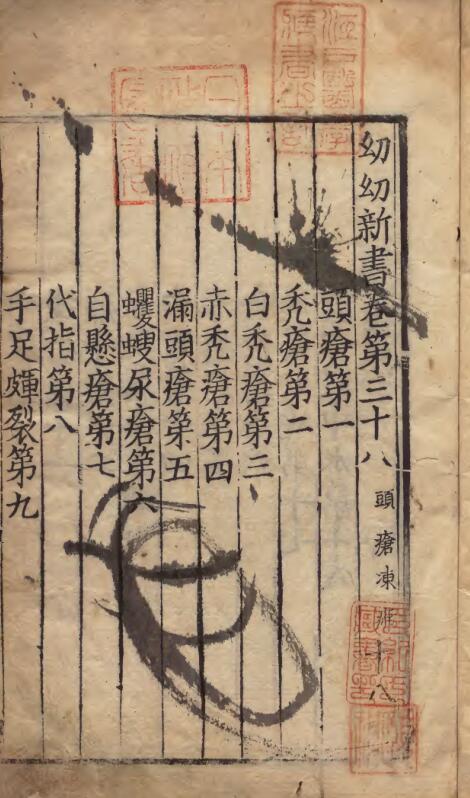 幼幼新書卷第三十八 頭瘡凍瘃十八
頭瘡第一
禿瘡第二
白禿瘡第三
赤禿瘡第四
漏頭瘡第五
蠼螋尿瘡第六
自懸瘡第七
代指第八
手足皸裂第九